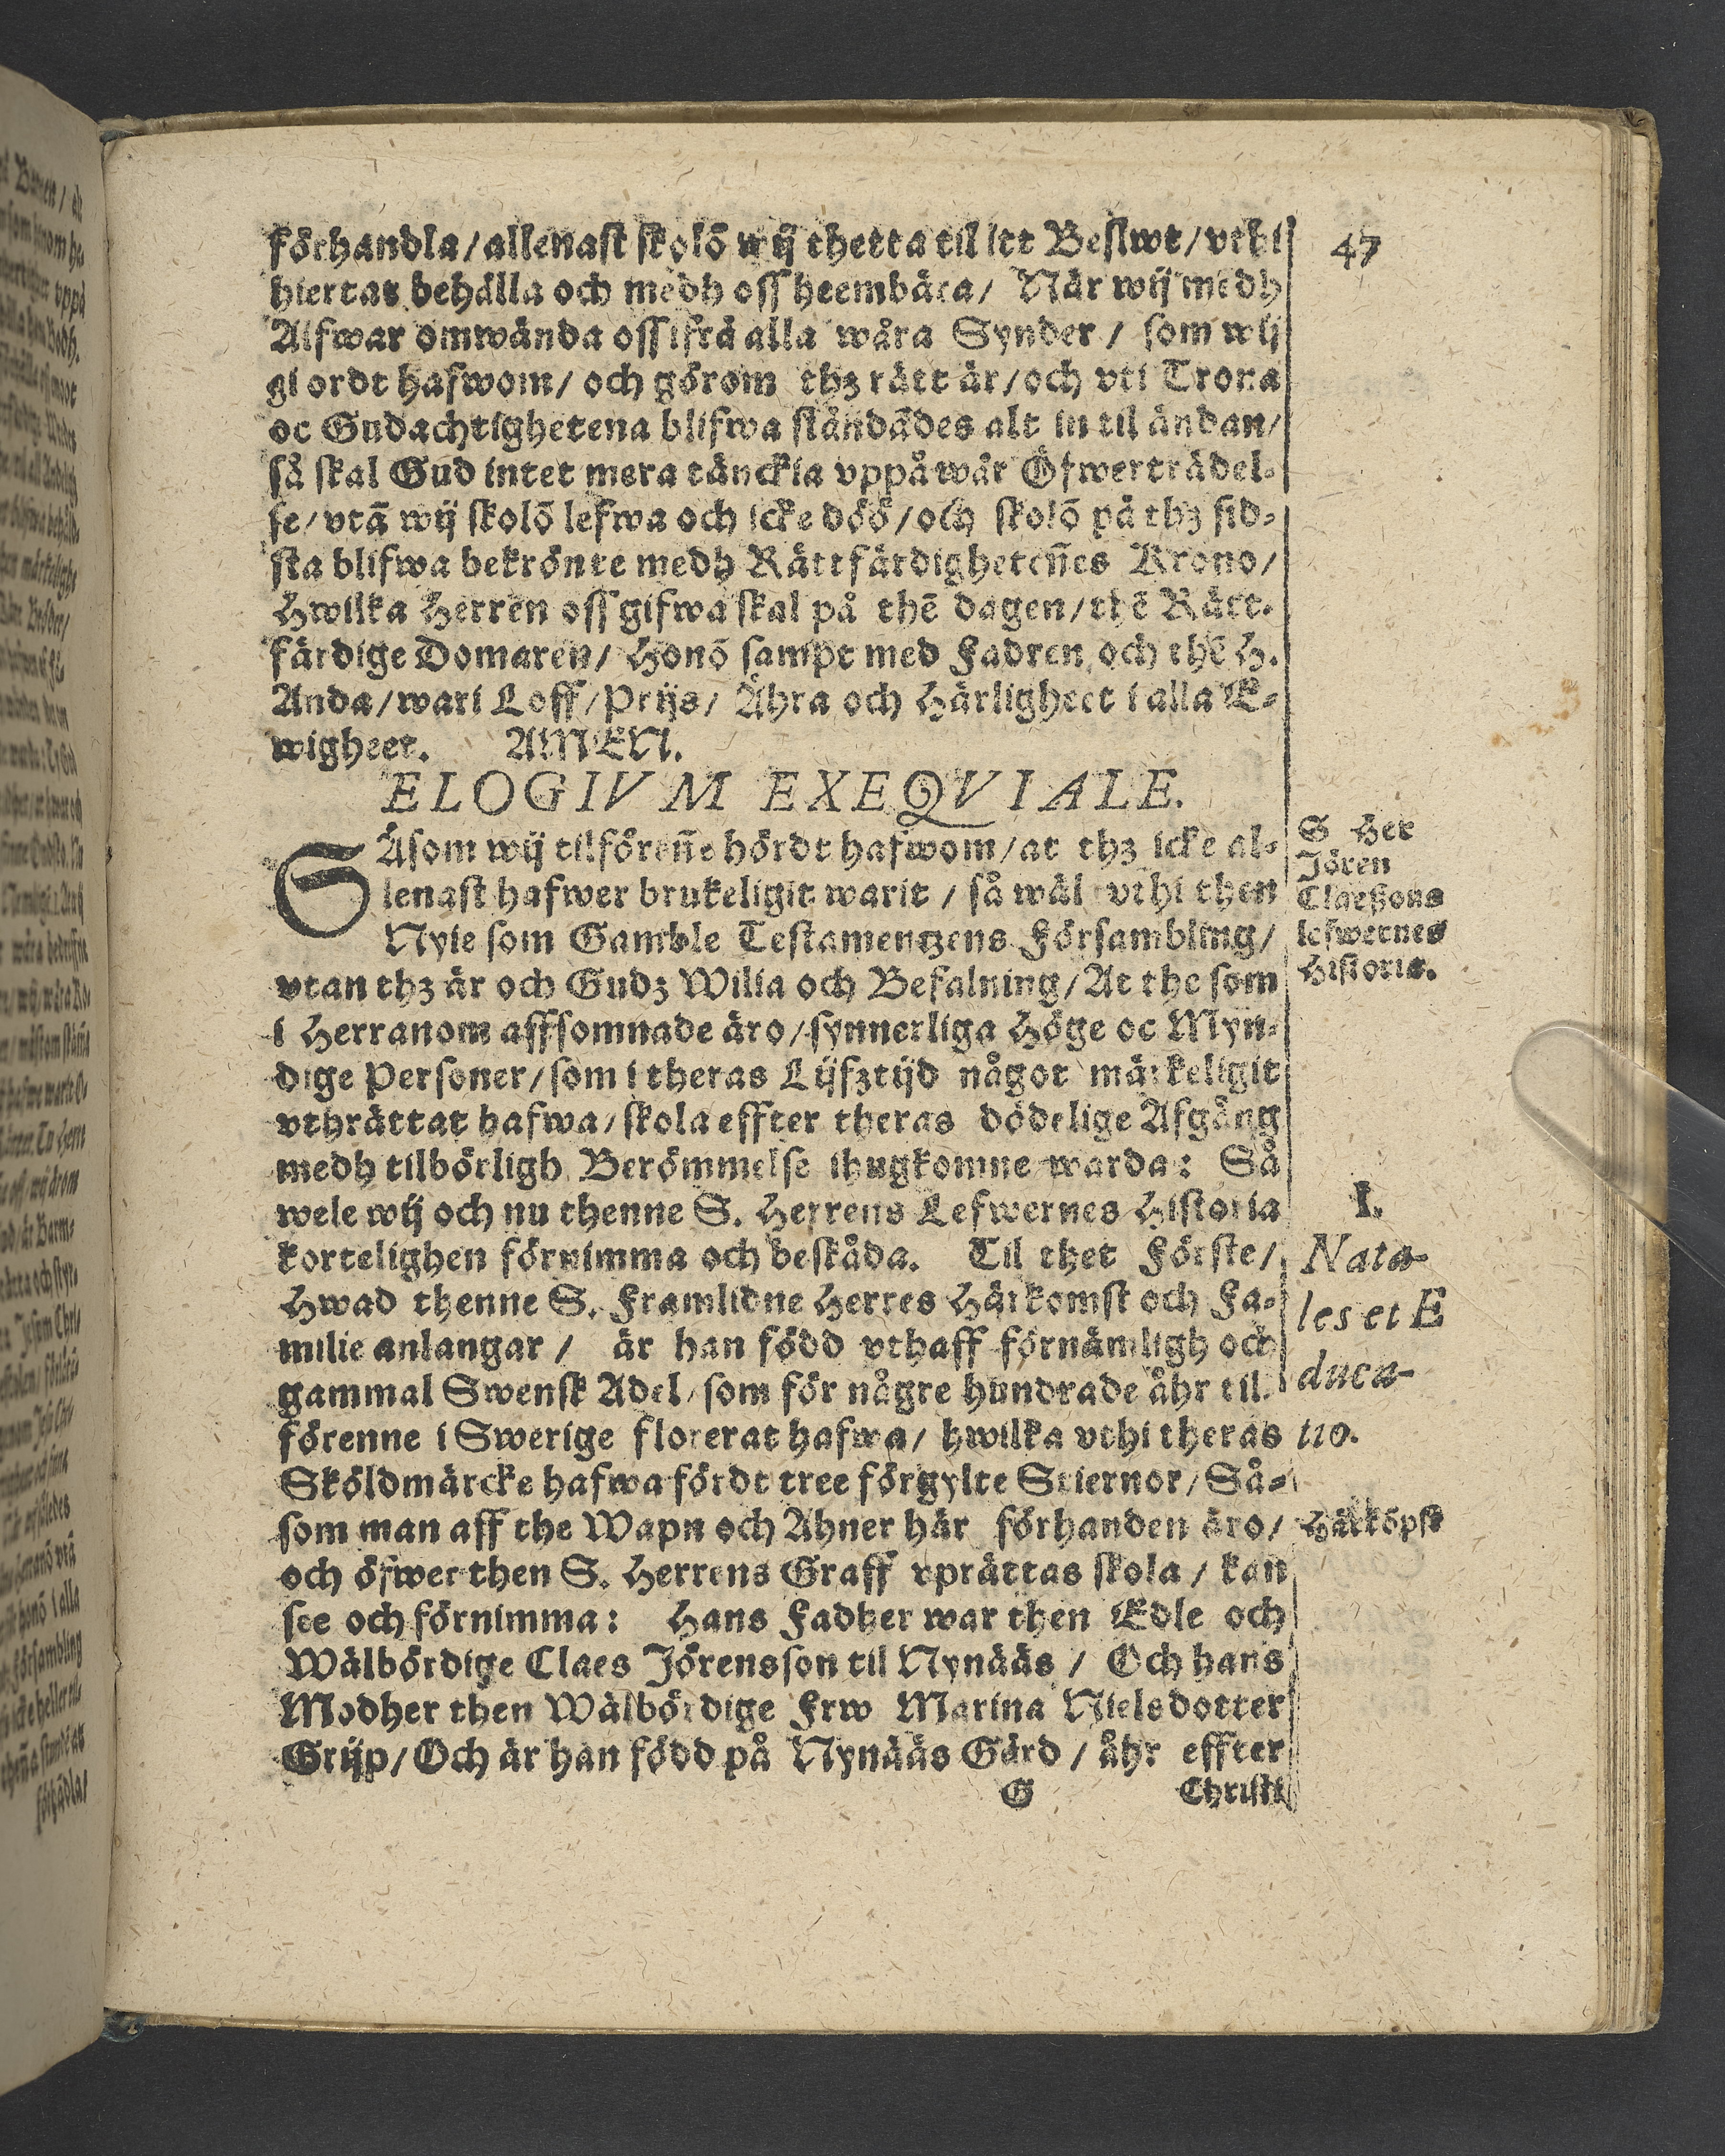 47
förhandla/ allenast skolõ wij thetta til itt Beslwt/ vthi
hiertat behålla och medh oss heembära/ När wij medh
Alfwar omwända oss ifrå alla wåra Synder/ som wij
giordt hafwom/ och görom thz rätt är/ och vti Trona
oc Gudachtighetena blifwa ståndãdes alt in til ändan/
så skal Gud intet mera tänckia vppå wår Öfwerträdel-
se/ vtã wij skolõ lefwa och icke döö/ och skolõ på thz sid-
sta blifwa bekrönte medh Rättfärdigheteñes Krono/
Hwilka Herren oss gifwa skal på thẽ dagen/ thẽ Rätt-
färdige Domaren/ Honõ sampt med Fadren och thẽ H.
Anda/ wari Loff/ Prijs/ Ähra och Härligheet i alla E-
wigheet. AMEN.
ELOGIVM EXEQVIALE.
SÅsom wij tilföreñe hördt hafwom/ at thz icke al-
lenast hafwer brukeligit warit/ så wäl vthi then
Nyie som Gamble Testamentzens Försambling/
vtan thz är och Gudz Wilia och Befalning/ At the som
i Herranom affsomnade äro/ synnerliga Höge oc Myn-
dige Personer/ som i theras Lijfztijd något märkeligit
vthrättat hafwa/ skola effter theras dödelige Afgång
medh tilbörligh Berömmelse ihugkomne warda: Så
wele wij och nu thenne S. Herrens Lefwernes Historia
kortelighen förnimma och beskåda. Til thet Förste/
Hwad thenne S. Framlidne Herres Härkomst och Fa-
milie anlangar/ är han född vthaff förnämligh och
gammal Swensk Adel/ som för någre hundrade åhr til-
förenne i Swerige florerat hafwa/ hwilka vthi theras
Sköldmärcke hafwa fördt tree förgylte Stiernor/ Så-
som man aff the Wapn och Ahner här förhanden äro/
och öfwer then S. Herrens Graff vprättas skola/ kan
see och förnimma: Hans Fadher war then Edle och
Wälbördige Claes Jörensson til Nynääs/ Och hans
Modher then Wälbördige Frw Marina Nielsdotter
Grijp/ Och är han född på Nynääs Gård/ åhr effter
G Christi
S Her
Jören
Claeßons
lefwernes
Historia.
I.
Nata-
les et E
duca-
tio.
Härköpst